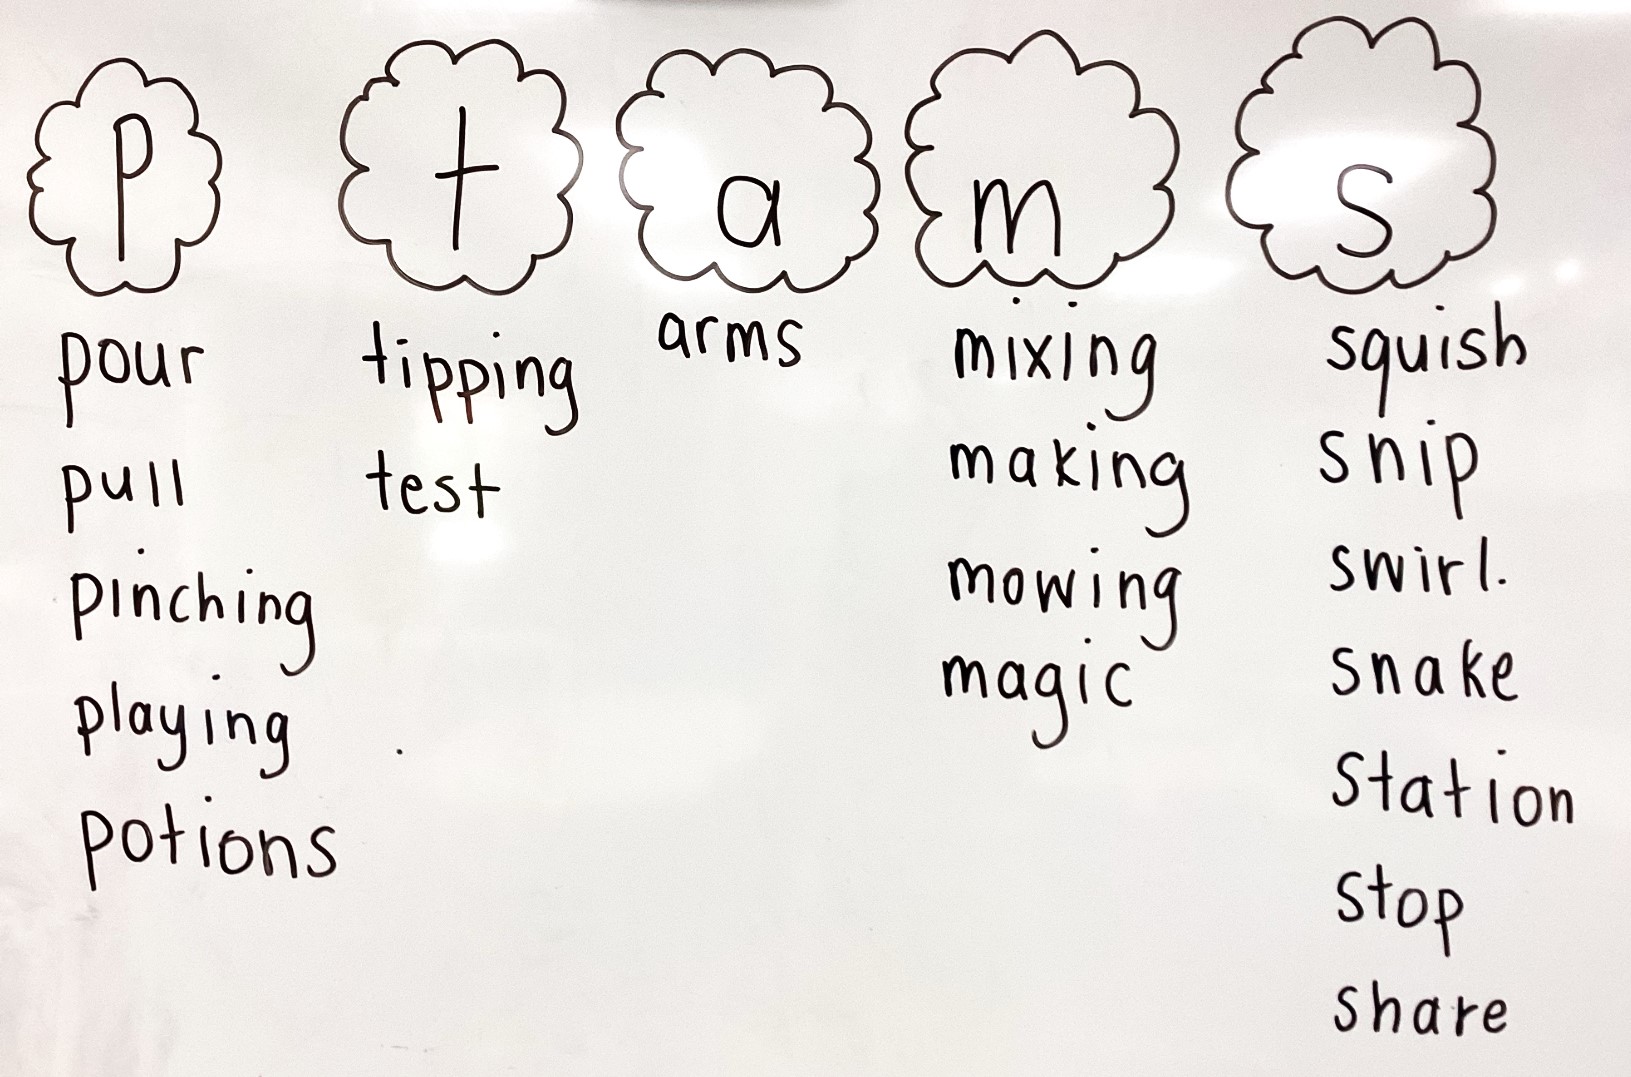 p
pour
pull
pinching
playing
potions
t
tipping
test
a
arms
m
mixing
making
mowing
magic
s
squish
snip
swirl.
snake
station
stop
share